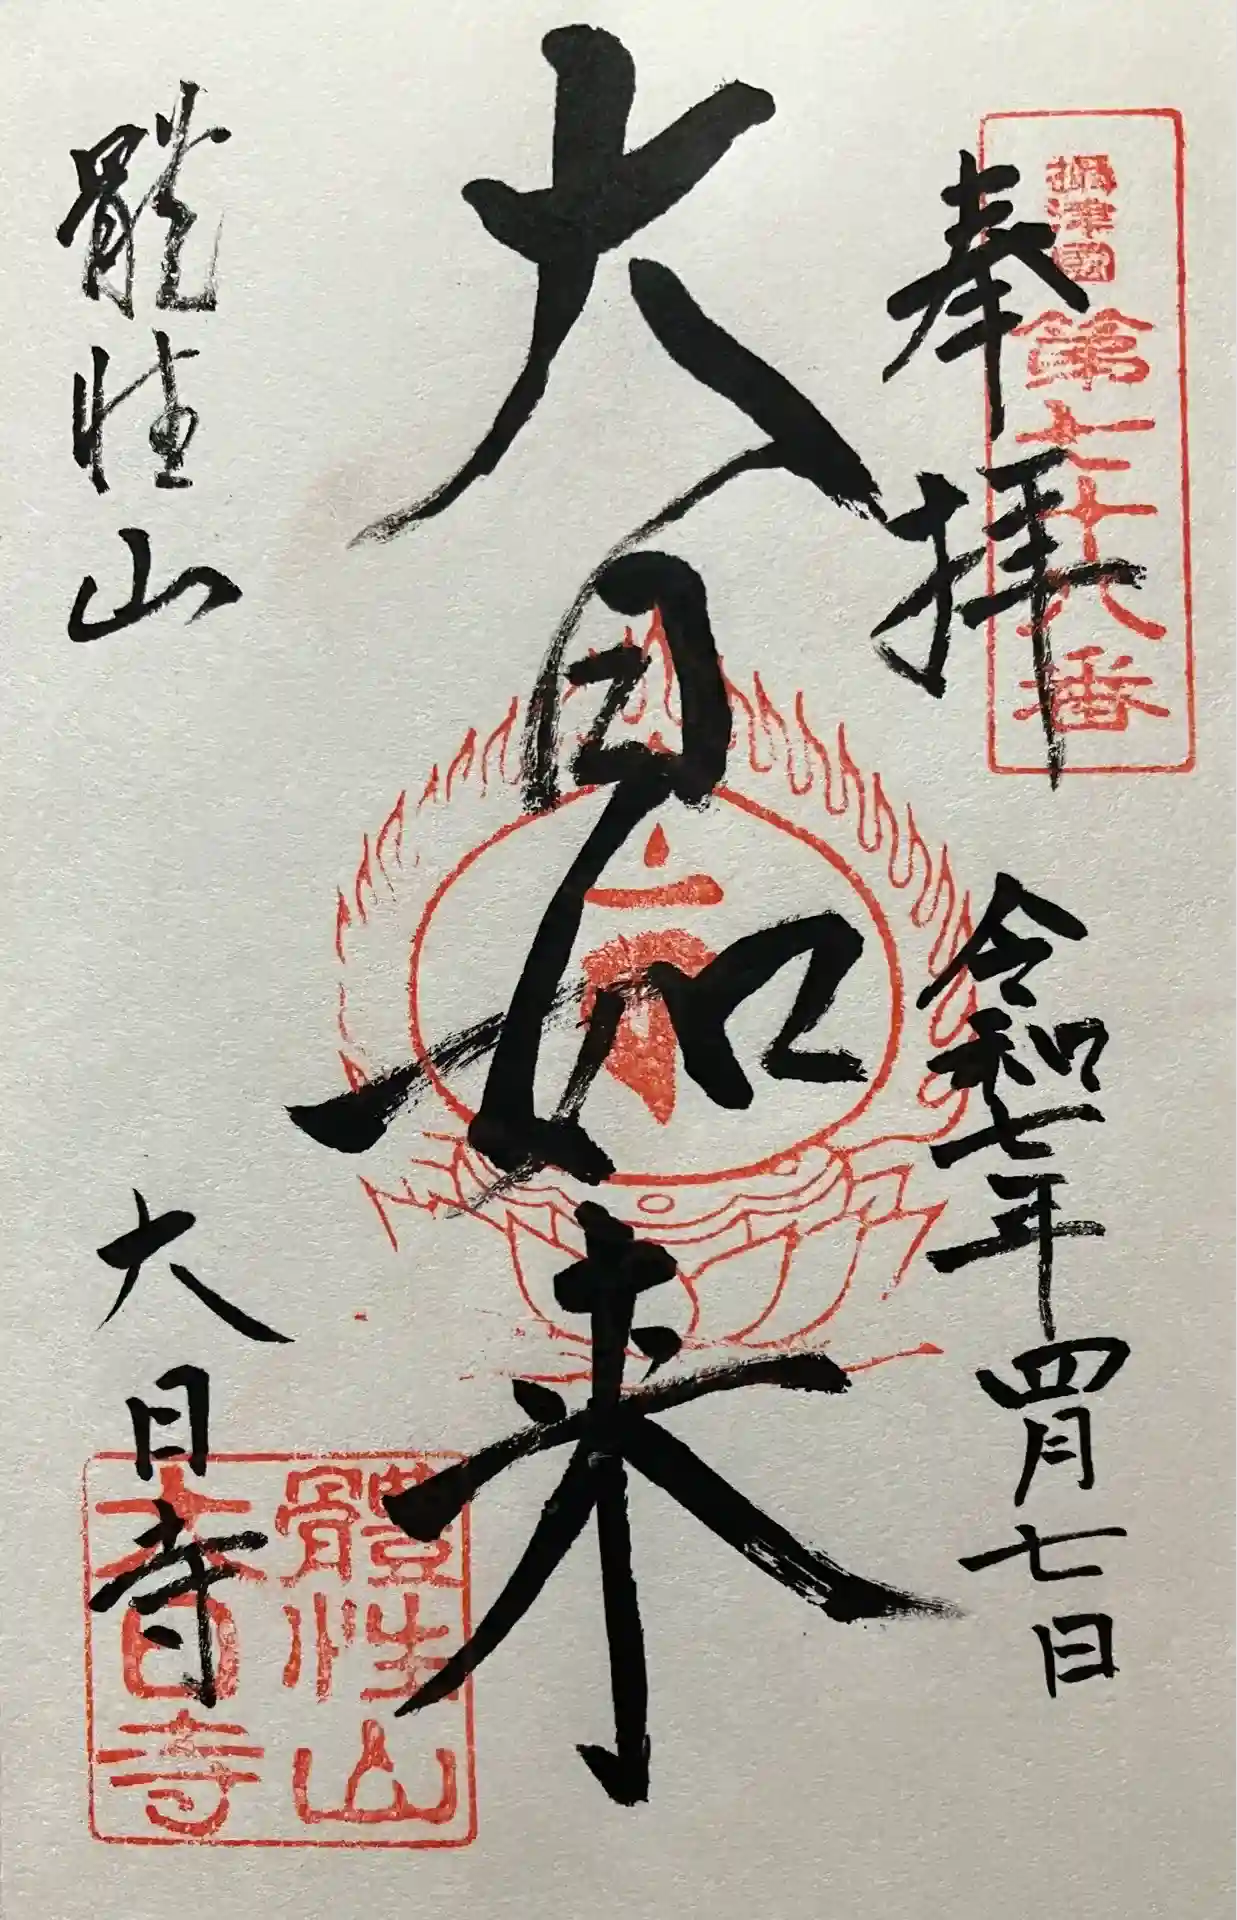 奉拝
攝津國第七十八番
令和七年四月七日
大日如来
體性山
大日寺
體性山
大日寺